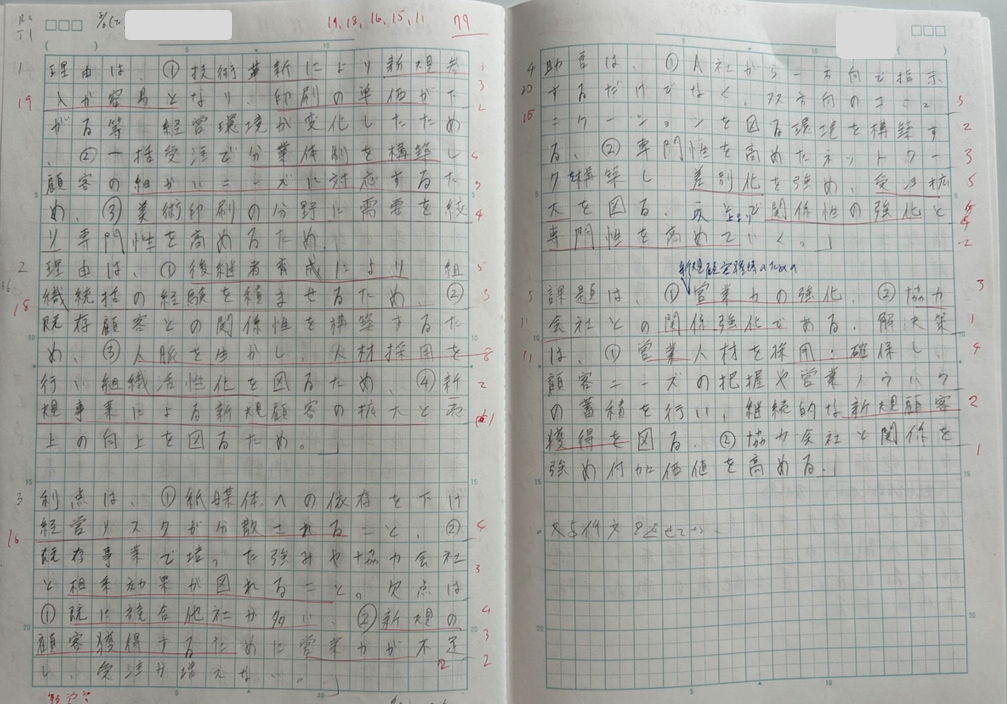 R4
J1
19, 18, 16, 15, 11
79
1 理由は、①技術革新により新規参
19 入が容易となり、印刷の単価が下 3
がる等 経営環境が変化したため 2
、②一括受注で分業体制を構築し 4
顧客の細かいニーズに対応するた
め、③美術印刷の分野に需要を絞 4
り専門性を高めるため。」
2 理由は、①後継者育成により 組 5
18 織統括の経験を積ませるため、② 5
既存顧客との関係性を構築するた
め、③人脈を生かし、人材採用を
行い組織活性化を図るため、④新 2
規事業による新規顧客の拡大と売
上の向上を図るため。」
3 利点は、①紙媒体への依存を下げ
16 経営リスクが分散されること、② 4
既存事業で培った強みや協力会社 3
と相乗効果が図れること。欠点は
①既に競合他社が多い、②新規の 4
顧客獲得するために営業力が不足 3
し、受注が増えない。」 2
4 助言は、①A社から一方向で指示
20 するだけでなく、双方向のコミュ 5
15 ニケーションを図る環境を構築す 2
る、②専門性を高めたネットワー 3
クを構築し、差別化を強め、受注拡 5
大を図る、以上で関係性の強化と
専門性を高めていく。」 -2
5 課題は ①営業力の強化、②協力 3
会社との関係強化である。解決策 1
11 は、①営業人材を採用・確保し、 4
顧客ニーズの把握や営業ノウハウ
の蓄積を行い、継続的な新規顧客 2
獲得を図る、②協力会社と関係を 1
強め付加価値を高める。」